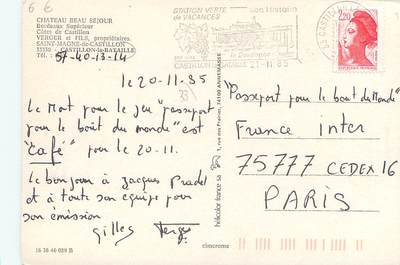 6 €
CHATEAU BEAU SEJOUR
Bordeaux Supérieur
Côtes de Castillon
VERGER et FILS, propriétaires
SAINT-MAGNE-de-CASTILLON
33350 - CASTILLON-la-BATAILLE
Tél. : 57-40-13-14
le 20-11-85
Le Mot pour le jeu "passeport
pour le bout du monde" est
"Café" pour le 20-11.
Le bonjour à Jacques Pradel
et à toute son équipe pour
son émission
Gilles Verger
16 36 46 089 B
cimcrome
STATION VERTE
de VACANCES
son Histoire
21-11 85
33
74100 ANNEMASSE
2,20
"Passeport pour le bout du Monde"
France inter
75777 CEDEX 16
PARIS